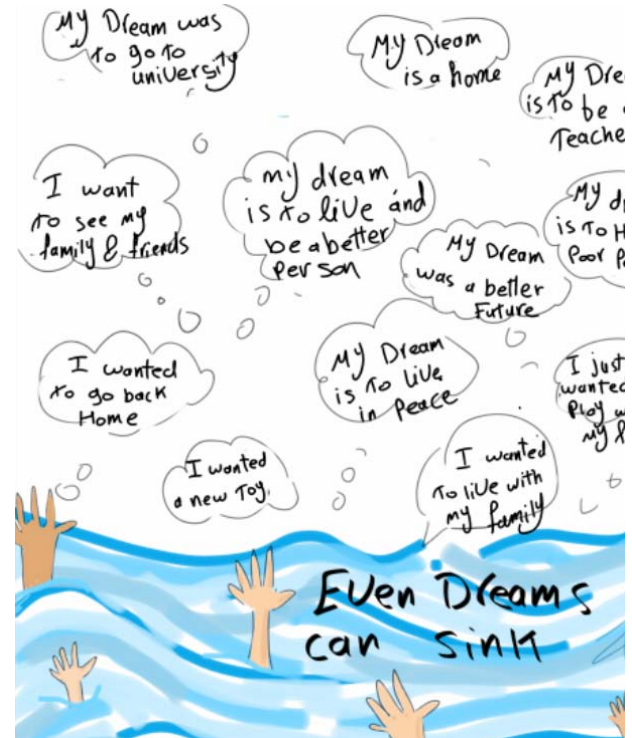 My Dream was
to go to
university
My Dream
is a home
My
is to be
I want
to see my
family & friends
my dream
is to live and
be a better
person
My
is to
Poor
My Dream
was a better
Future
I wanted
to go back
Home
My Dream
is to live
in Peace
I just
wanted
Play
my
I wanted
a new Toy.
I wanted
to live with
my family
Even Dreams
can sink